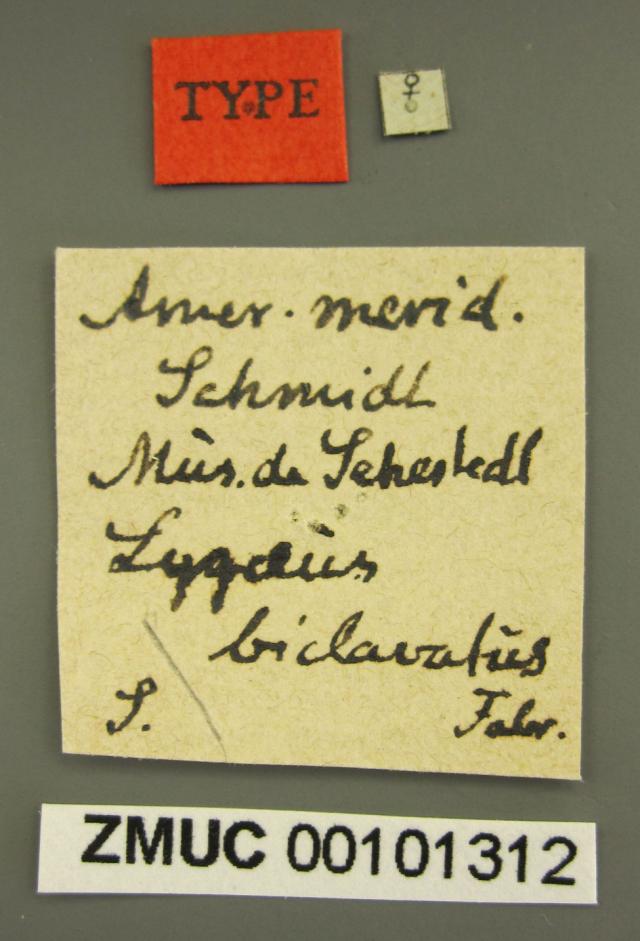 TYPE
♀
Amer. merid.
Schmidt
Mus. de Sehestedt
Lygaeus
biclavatus
S. Fabr.
ZMUC 00101312